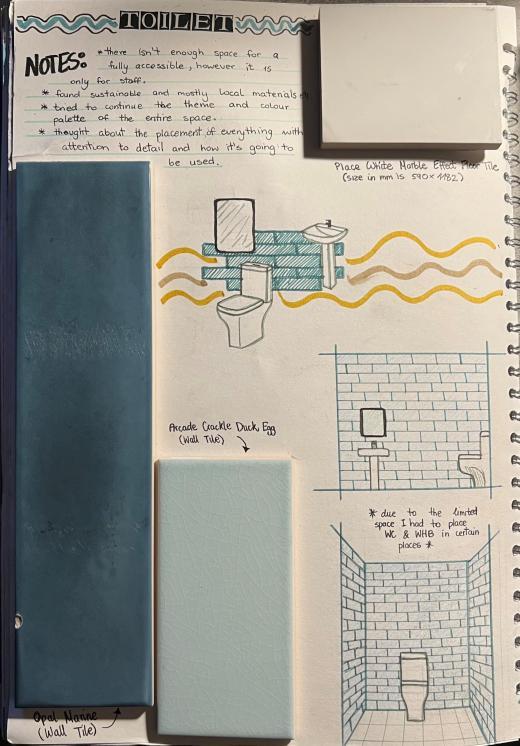 TOILET
NOTES: * there isn't enough space for a
fully accessible, however it is
only for staff.
* found sustainable and mostly local materials
* tried to continue the theme and colour
palette of the entire space.
* thought about the placement of everything with
attention to detail and how it's going to
be used.
Place White Marble Effect Floor Tile
(size in mm is 590 x
Arcade Crackle Duck Egg
(Wall Tile)
* due to the limited
space I had to place
WC & WHB in certain
places *
Opal Marine
(Wall Tile)